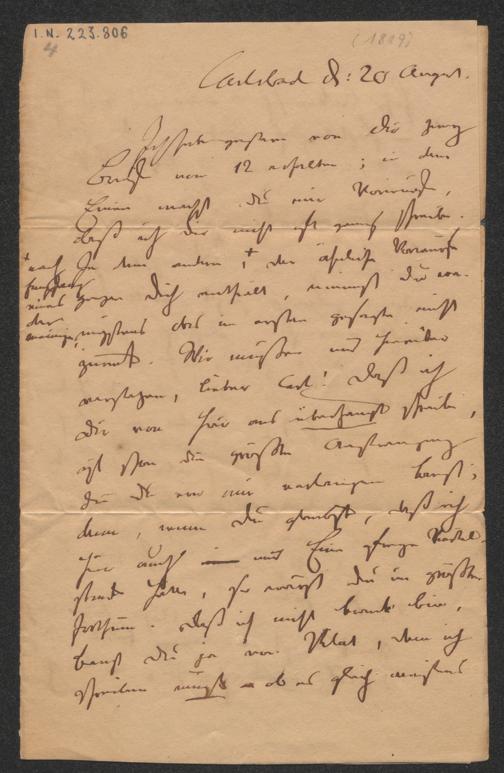 I.N. 223.806
4
(1819)
Carlsbad d: 20 August.
Ich habe gestern von dir zwey
Briefe vom 12 erhalten; in dem
Einen machst du mir Vorwürfe,
daß ich dir nicht oft genug schreibe.
In dem andern, + der ähnliche Vorwürfe
+ nach
eines
der
gegen dich enthält, nimmst du
das im ersten gesagte nicht
zurück. Wir müssen uns hierüber
verstehen, lieber Carl! Daß ich
dir von hier aus überhaupt schreibe,
ist schon die größte Anstrengung
die du von mir verlangen kannst;
denn, wenn du glaubst, daß ich
hier auch — nur Eine freye Viertel-
stunde habe, so wärest du im größten
Irrthum. Daß ich nicht krank bin,
kannst du ja von
schreiben muß – ob es gleich meistens